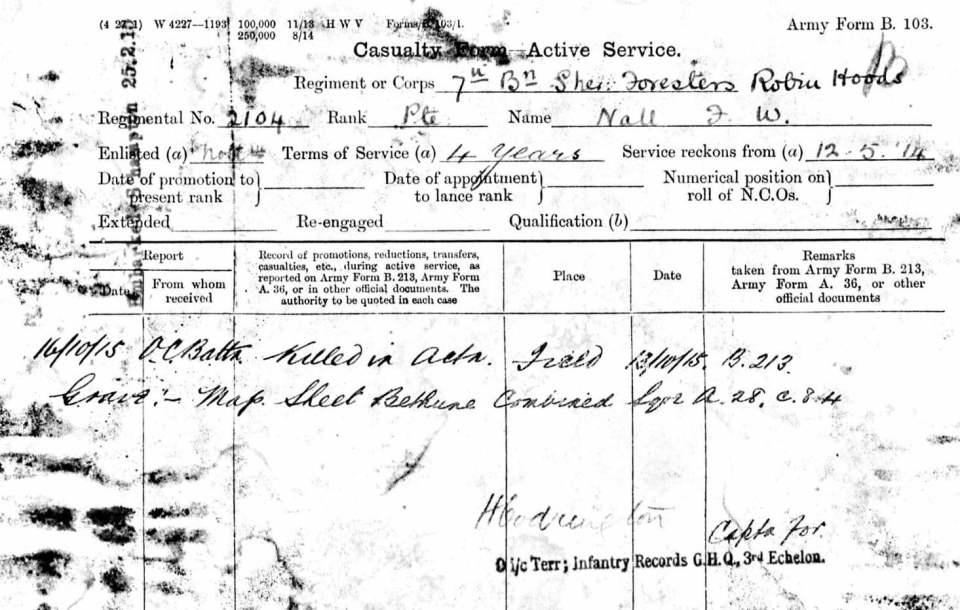 (4 27 1) W 4227—1193 100,000 11/13 H W V Forms/B. 103/1.
250,000 8/14
Army Form B. 103.
Casualty Form—Active Service.
Regiment or Corps 7th Bn Sher: Foresters Robin Hoods
Regimental No. 2104 Rank Pte Name Nall F W.
Enlisted (a) Terms of Service (a) 4 Years Service reckons from (a) 12-5.'14
Date of promotion to present rank } Date of appointment to lance rank } Numerical position on roll of N.C.Os. }
Extended Re-engaged Qualification (b)
Report
Date
From whom received
Record of promotions, reductions, transfers, casualties, etc., during active service, as reported on Army Form B. 213, Army Form A. 36, or in other official documents. The authority to be quoted in each case
Place
Date
Remarks
taken from Army Form B. 213, Army Form A. 36, or other official documents
16/10/15 O.C. Battn. Killed in Actn. Field 13/10/15. B. 213.
Grave:- Map. Sheet Bethune Combined Sqre A. 28. c. 8.4
Captn for
O i/c Terr; Infantry Records G.H.Q., 3rd Echelon.
Embarked S'hampton 25.2.15